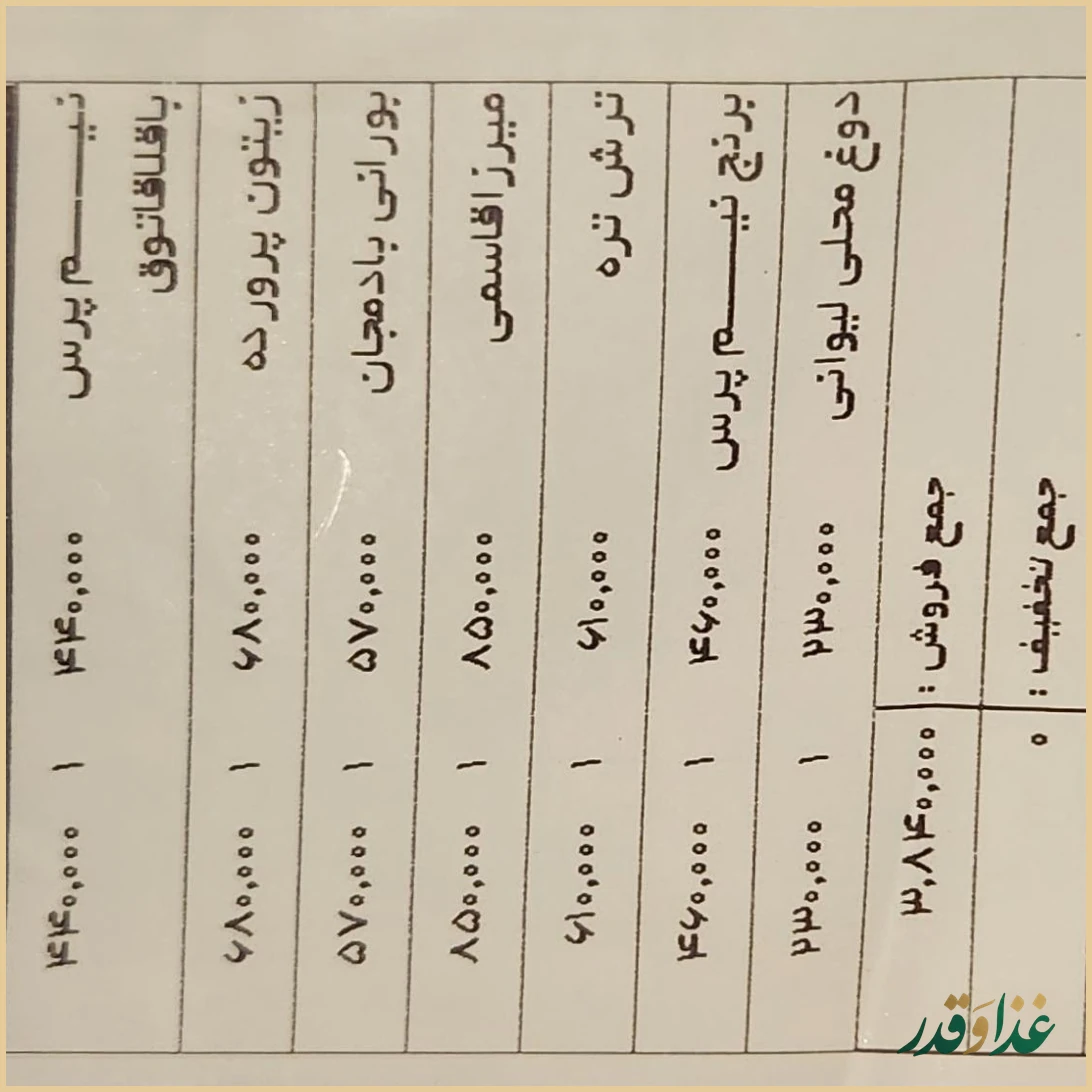 نیـــــم پرس ۴۴۰,۰۰۰ ۱ ۴۴۰,۰۰۰
باقلاقاتوق
زیتون پرورده ۶۸۰,۰۰۰ ۱ ۶۸۰,۰۰۰
بورانی بادمجان ۵۷۰,۰۰۰ ۱ ۵۷۰,۰۰۰
میرزاقاسمی ۸۵۰,۰۰۰ ۱ ۸۵۰,۰۰۰
ترش تره ۶۱۰,۰۰۰ ۱ ۶۱۰,۰۰۰
برنج نیـــــم پرس ۴۶۰,۰۰۰ ۱ ۴۶۰,۰۰۰
دوغ محلی لیوانی ۲۳۰,۰۰۰ ۱ ۲۳۰,۰۰۰
جمع فروش : ۳,۸۴۰,۰۰۰
جمع تخفیف : ۰
غذا و قدر